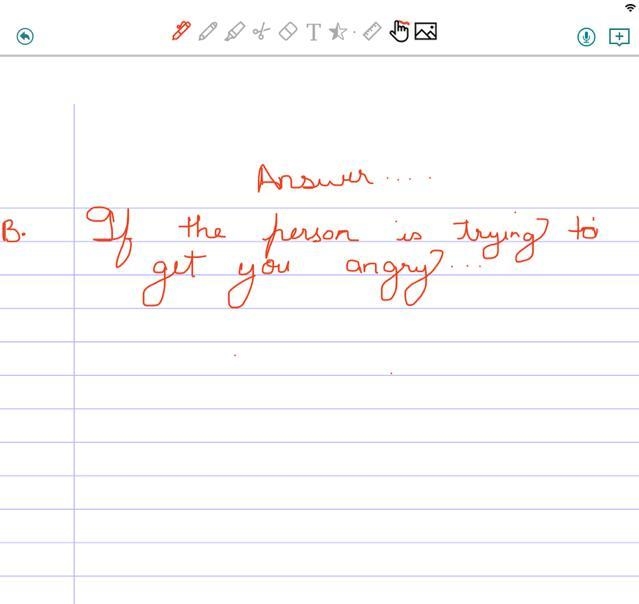 Answer....
B. If the person is trying to
get you angry...